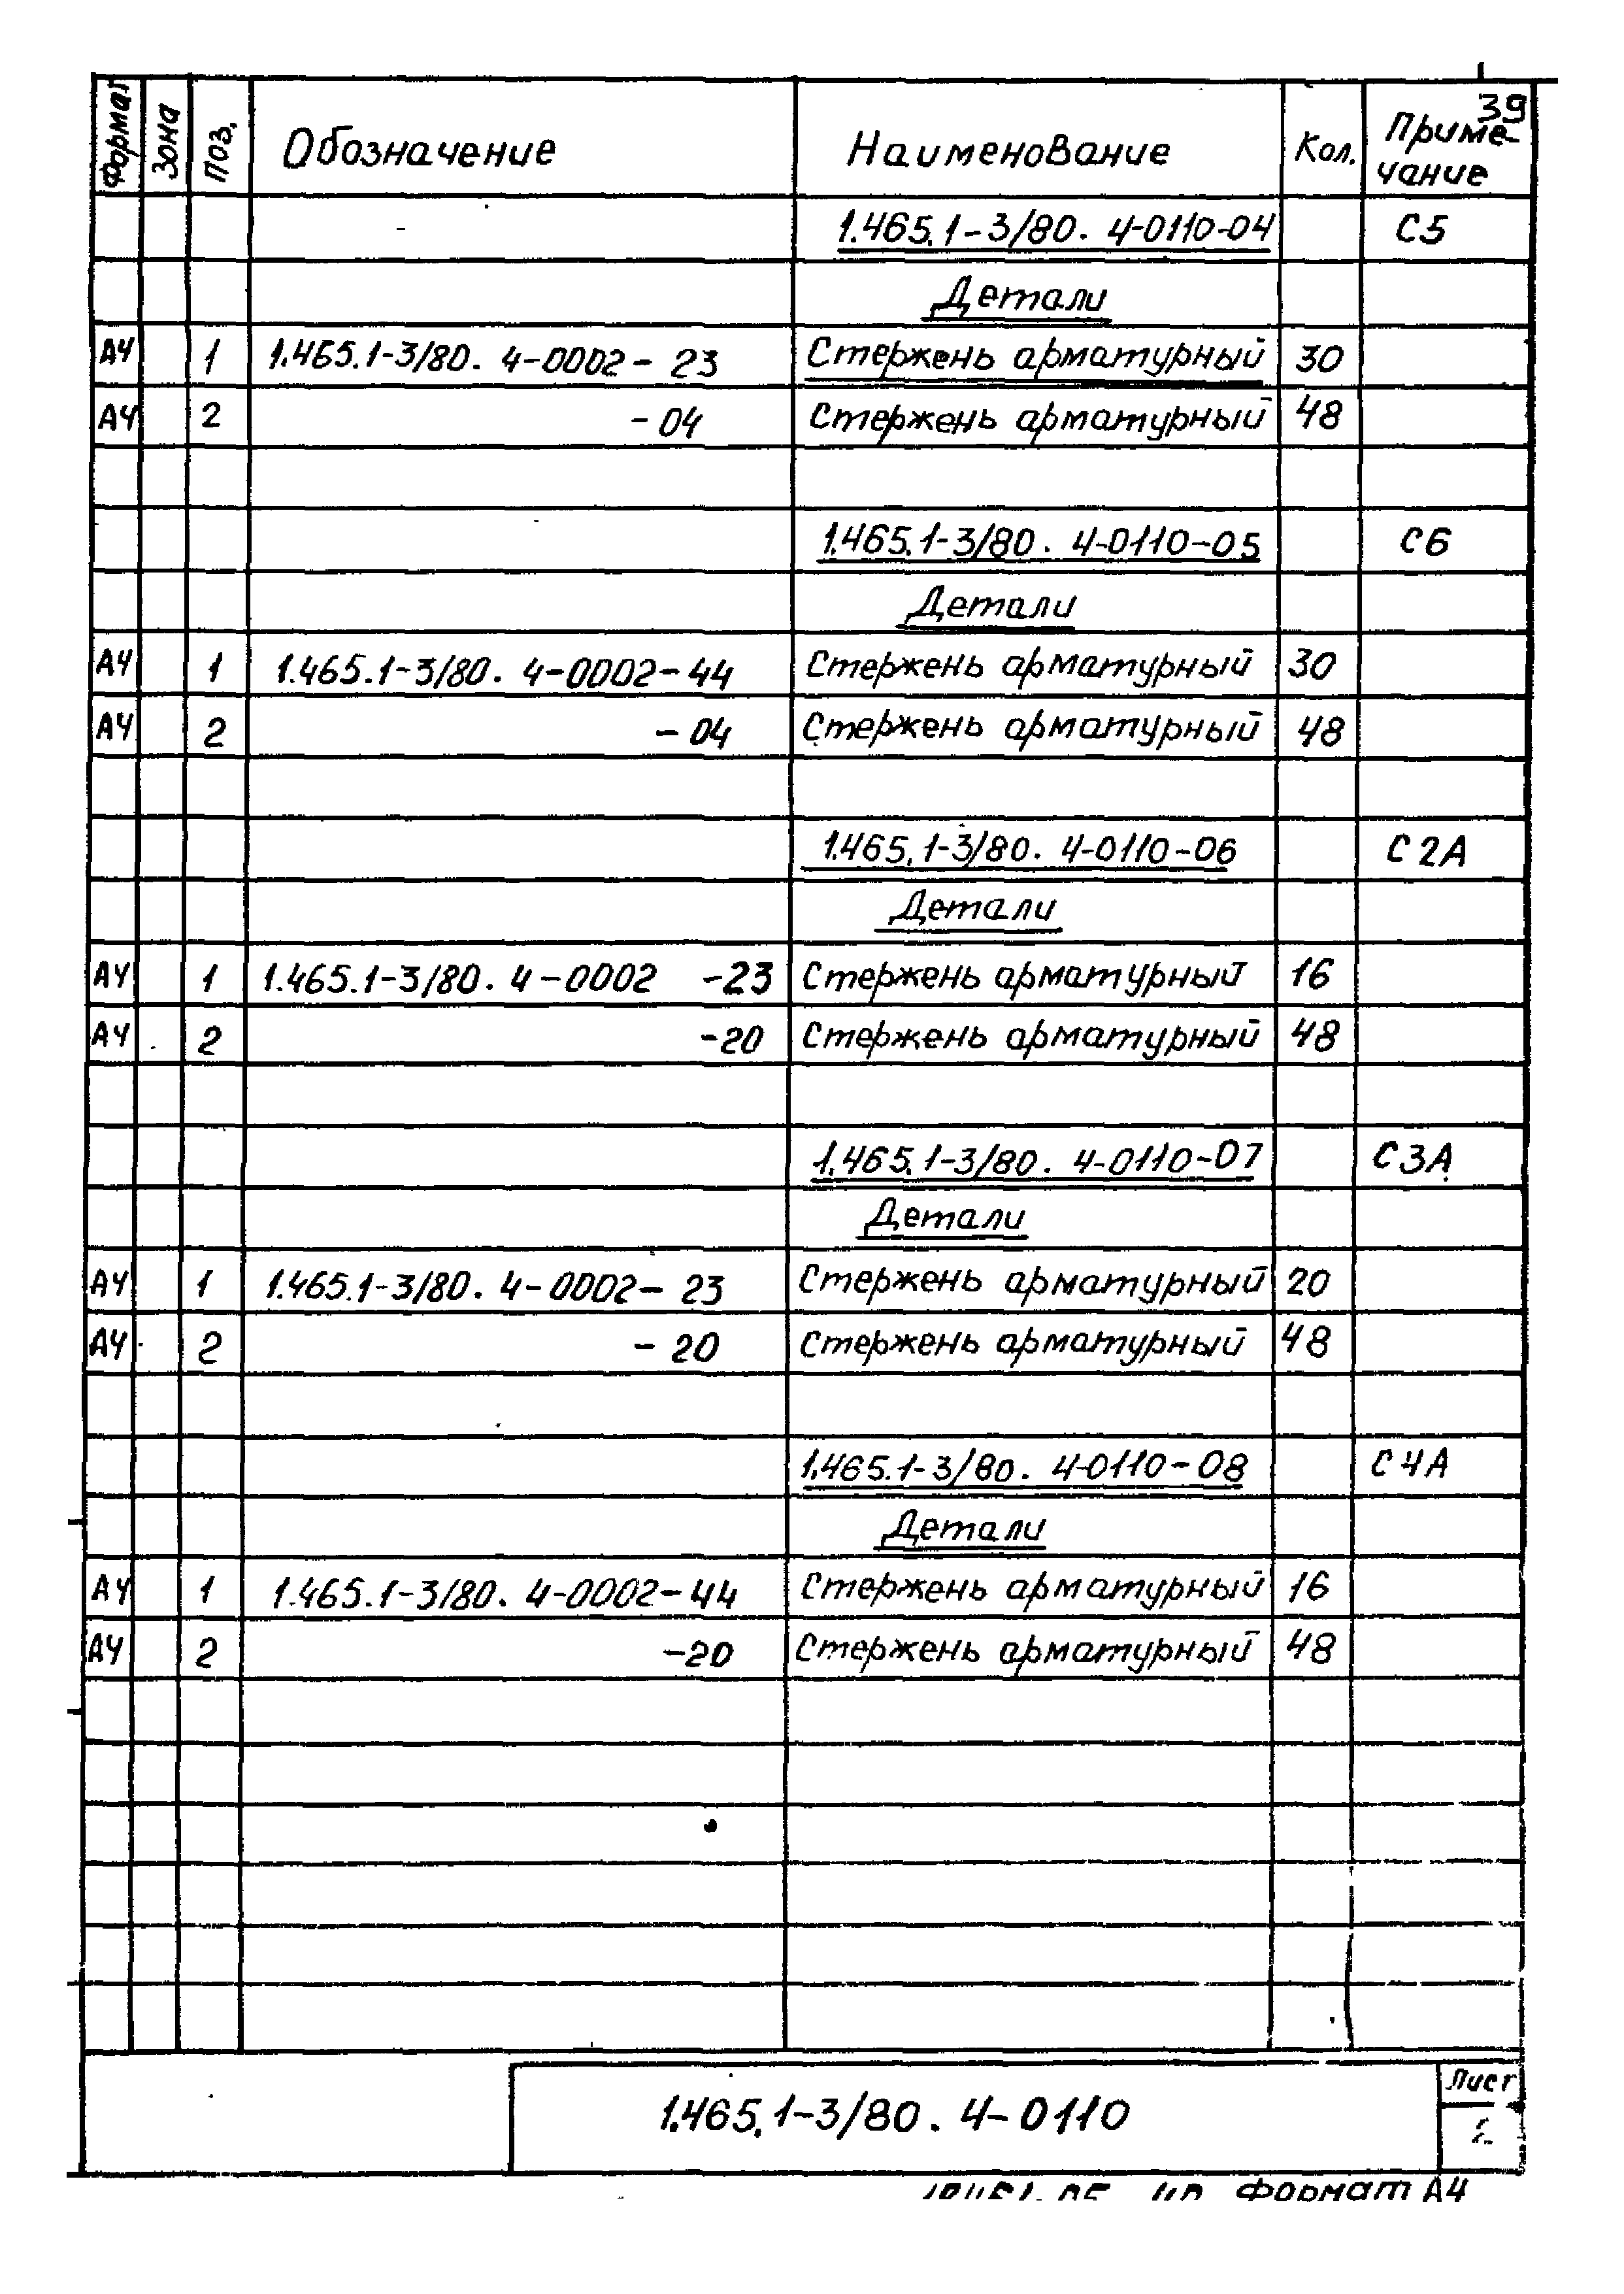 39
Формат Зона Поз. Обозначение Наименование Кол. Приме-
чание
1.465.1-3/80. 4-0110-04 С5
Детали
А4 1 1.465.1-3/80. 4-0002- 23 Стержень арматурный 30
А4 2 - 04 Стержень арматурный 48
1.465.1-3/80. 4-0110-05 С6
Детали
А4 1 1.465.1-3/80. 4-0002-44 Стержень арматурный 30
А4 2 - 04 Стержень арматурный 48
1.465.1-3/80. 4-0110-06 С2А
Детали
А4 1 1.465.1-3/80. 4-0002 -23 Стержень арматурный 16
А4 2 -20 Стержень арматурный 48
1.465.1-3/80. 4-0110-07 С3А
Детали
А4 1 1.465.1-3/80. 4-0002- 23 Стержень арматурный 20
А4 2 - 20 Стержень арматурный 48
1.465.1-3/80. 4-0110-08 С4А
Детали
А4 1 1.465.1-3/80. 4-0002-44 Стержень арматурный 16
А4 2 -20 Стержень арматурный 48
1.465.1-3/80. 4-0110
Лист
2
Формат А4